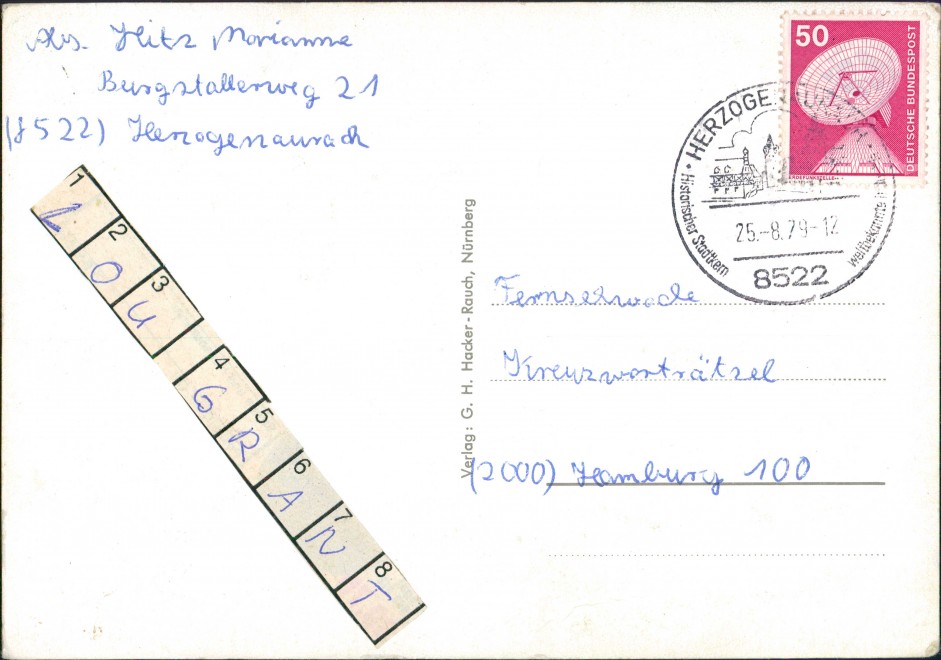 Abs. Hitz Marianne
Burgstallerweg 21
(8522) Herzogenaurach
1 2 3 4 5 6 7 8
L O U G R A N T
Verlag: G. H. Hacker-Rauch, Nürnberg
50
DEUTSCHE BUNDESPOST
ERDEFUNKSTELLE
HERZOGENAURACH
Historischer Stadtkern
weltbekannte
25.-8.79-12
8522
Fernsehwoche
Kreuzworträtzel
(2000) Hamburg 100